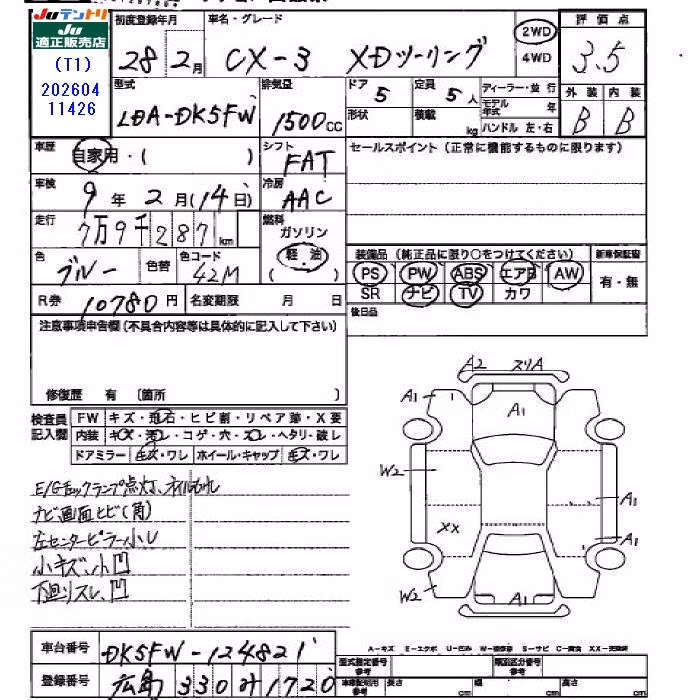 Juテントリ
Ju
適正販売店
(T1)
202604
11426
初度登録年月
28年2月
車名・グレード
CX-3 XDツーリング
2WD
4WD
評価点
3.5
型式
LDA-DK5FW
排気量
1500cc
ドア
5
定員
5人
形状
積載
kg
ディーラー・並行
モデル年式 年
ハンドル 左・右
外装 内装
B B
車歴
自家用・( )
シフト
FAT
セールスポイント(正常に機能するものに限ります)
車検
9年2月(14日)
冷房
AAC
走行
7万9千287km
燃料
ガソリン
軽油
( )
色
ブルー
色替
色コード
42M
装備品(純正品に限り○をつけてください)
新車保証書
PS PW ABS エアB AW
SR ナビ TV カワ
有・無
R券 10780円
名変期限 月 日
後日品
注意事項申告欄(不具合内容等は具体的に記入して下さい)
修復歴 有〔箇所 〕
検査員記入欄
FW キズ・飛石・ヒビ割・リペア跡・X要
内装 キズ・汚レ・コゲ・穴・スレ・ヘタリ・破レ
ドアミラー キズ・ワレ ホイール・キャップ キズ・ワレ
E/Gチェックランプ点灯、オイルもれ
ナビ画面ヒビ(角)
左センターピラー小凹
小キズ、小凹
下回りスレ、凹
A2 スリA
A1
A1
A1
W2
A1
XX
A1
W2
A1
車台番号 DK5FW-124821
登録番号 広島 330 み1720
A-キズ E-エクボ U-凹み W-補修跡 S-サビ C-腐食 XX-交換済
型式指定番号 参考
類別区分番号 参考
車庫証明用 参考
長さ cm
幅 cm
高さ cm